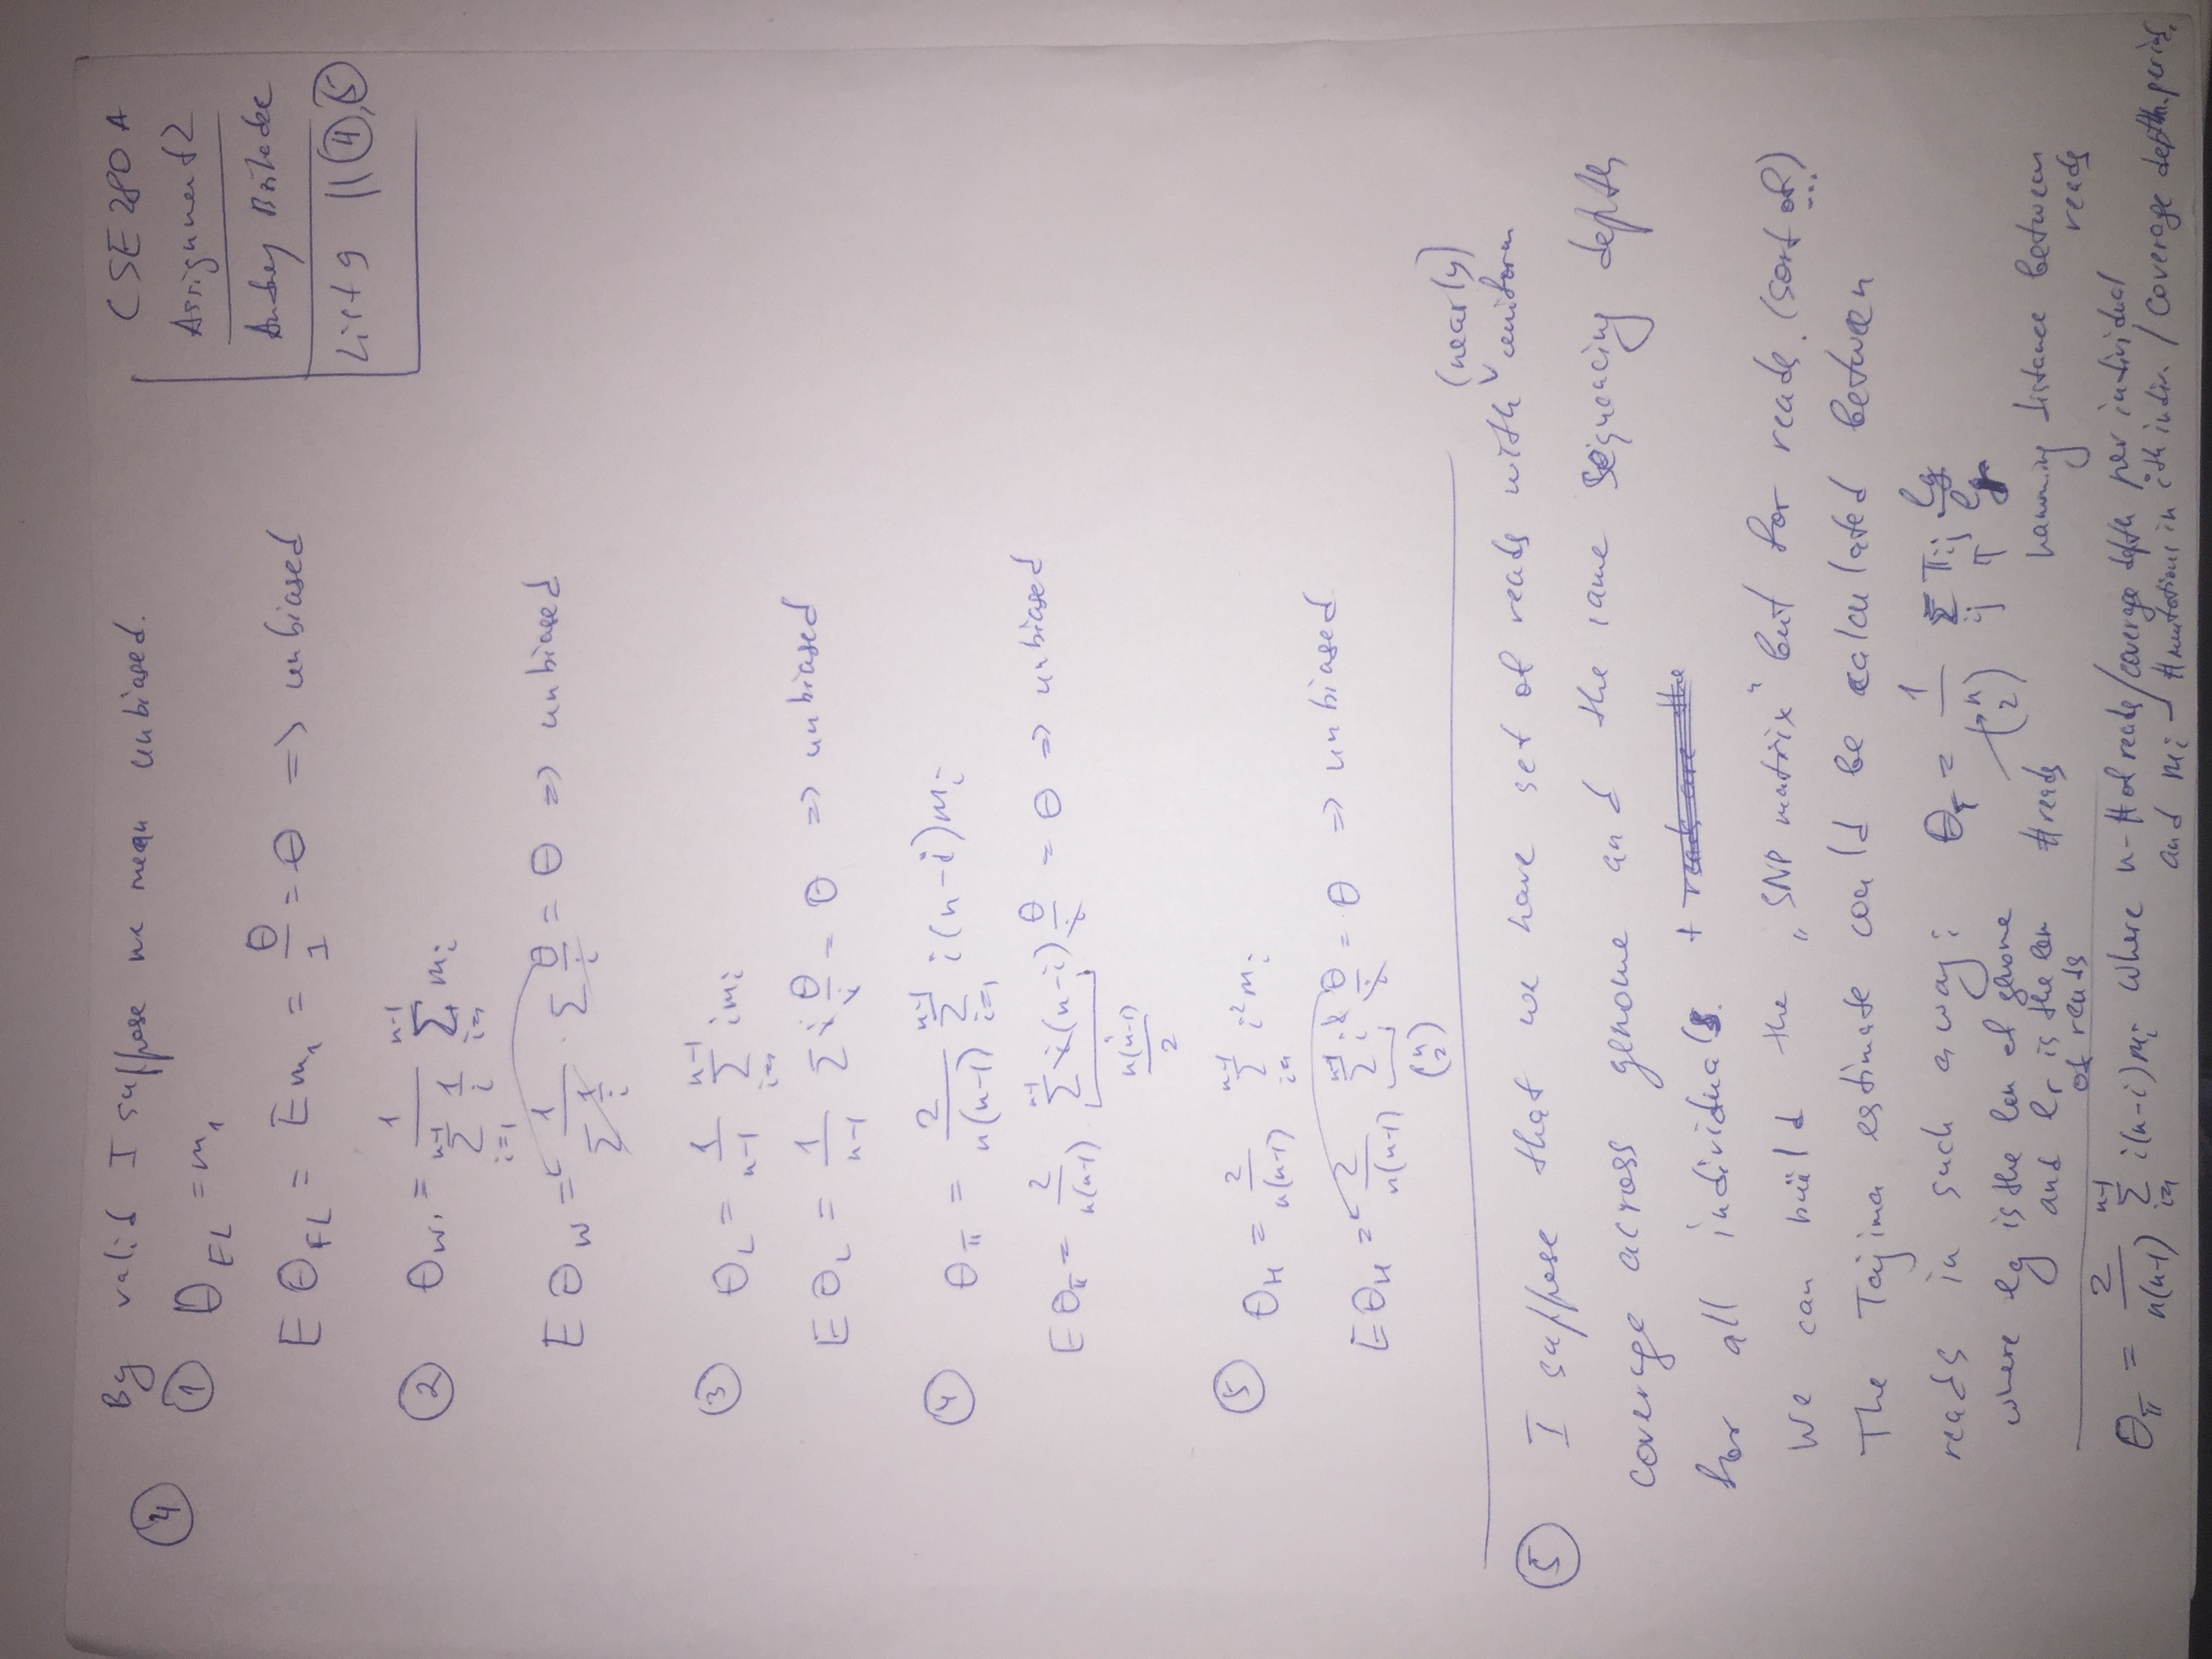 CSE 280 A
Assignment 2
List 9 || ④,⑤
④ By valid I suppose we mean unbiased.
① θ_FL = m_1
E θ_FL = E m_1 = θ/1 = θ => unbiased
② θ_W = 1/(∑_{i=1}^{n-1} 1/i) ∑_{i=1}^{n-1} m_i
E θ_W = 1/(∑ 1/i) · ∑ θ/i = θ => unbiased
③ θ_L = 1/(n-1) ∑_{i=1}^{n-1} i m_i
E θ_L = 1/(n-1) ∑ i θ/i = θ => unbiased
④ θ_π = 2/(n(n-1)) ∑_{i=1}^{n-1} i(n-i) m_i
E θ_π = 2/(n(n-1)) ∑^{n-1} i(n-i) θ/i = θ => unbiased
n(n-1)/2
⑤ θ_H = 2/(n(n-1)) ∑_{i=1}^{n-1} i² m_i
E θ_H = 2/(n(n-1)) ∑^{n-1} i² θ/i = θ => unbiased
(n 2)
⑤ I suppose that we have set of reads with (nearly) uniform
coverage across genome and the same sequencing depth
for all individuals. + reads are the
We can build the „SNP matrix" but for reads. (sort of...)
The Tajima estimate could be calculated between
reads in such a way: θ_π = 1/(n 2) ∑_{ij} π_ij lg/lr
where lg is the len of genome
and lr is the len of reads
#reads
hamming distance between reads
θ_π = 2/(n(n-1)) ∑_{i=1}^{n-1} i(n-i) m_i where n - # of reads/coverage depth per individual
and m_i - #mutations in ith indiv. / coverage depth per ind.